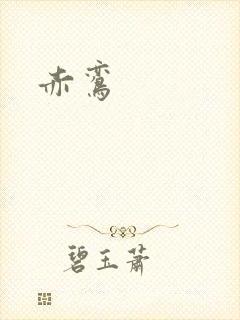 赤鸾
碧玉萧